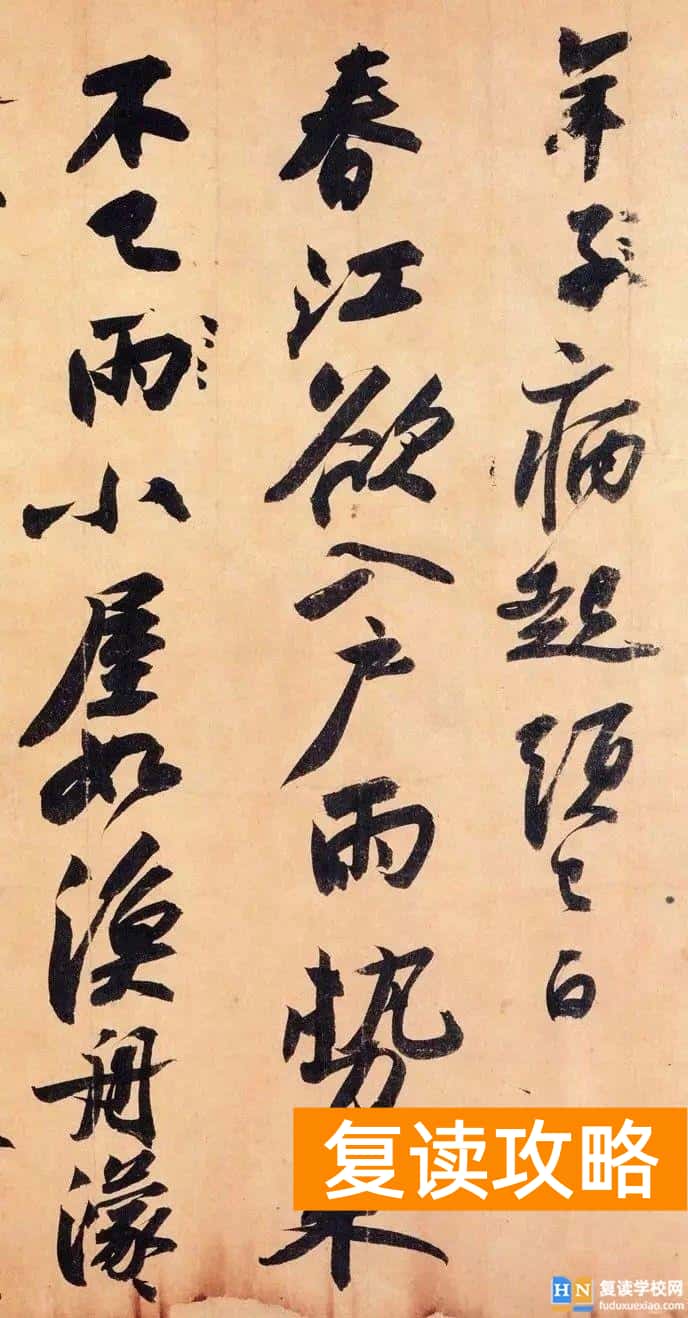 年子病起须已白
春江欲入户雨势来
不已雨小屋如渔舟濛
复读攻略
HN 复读学校网
fuduxuexiao.com